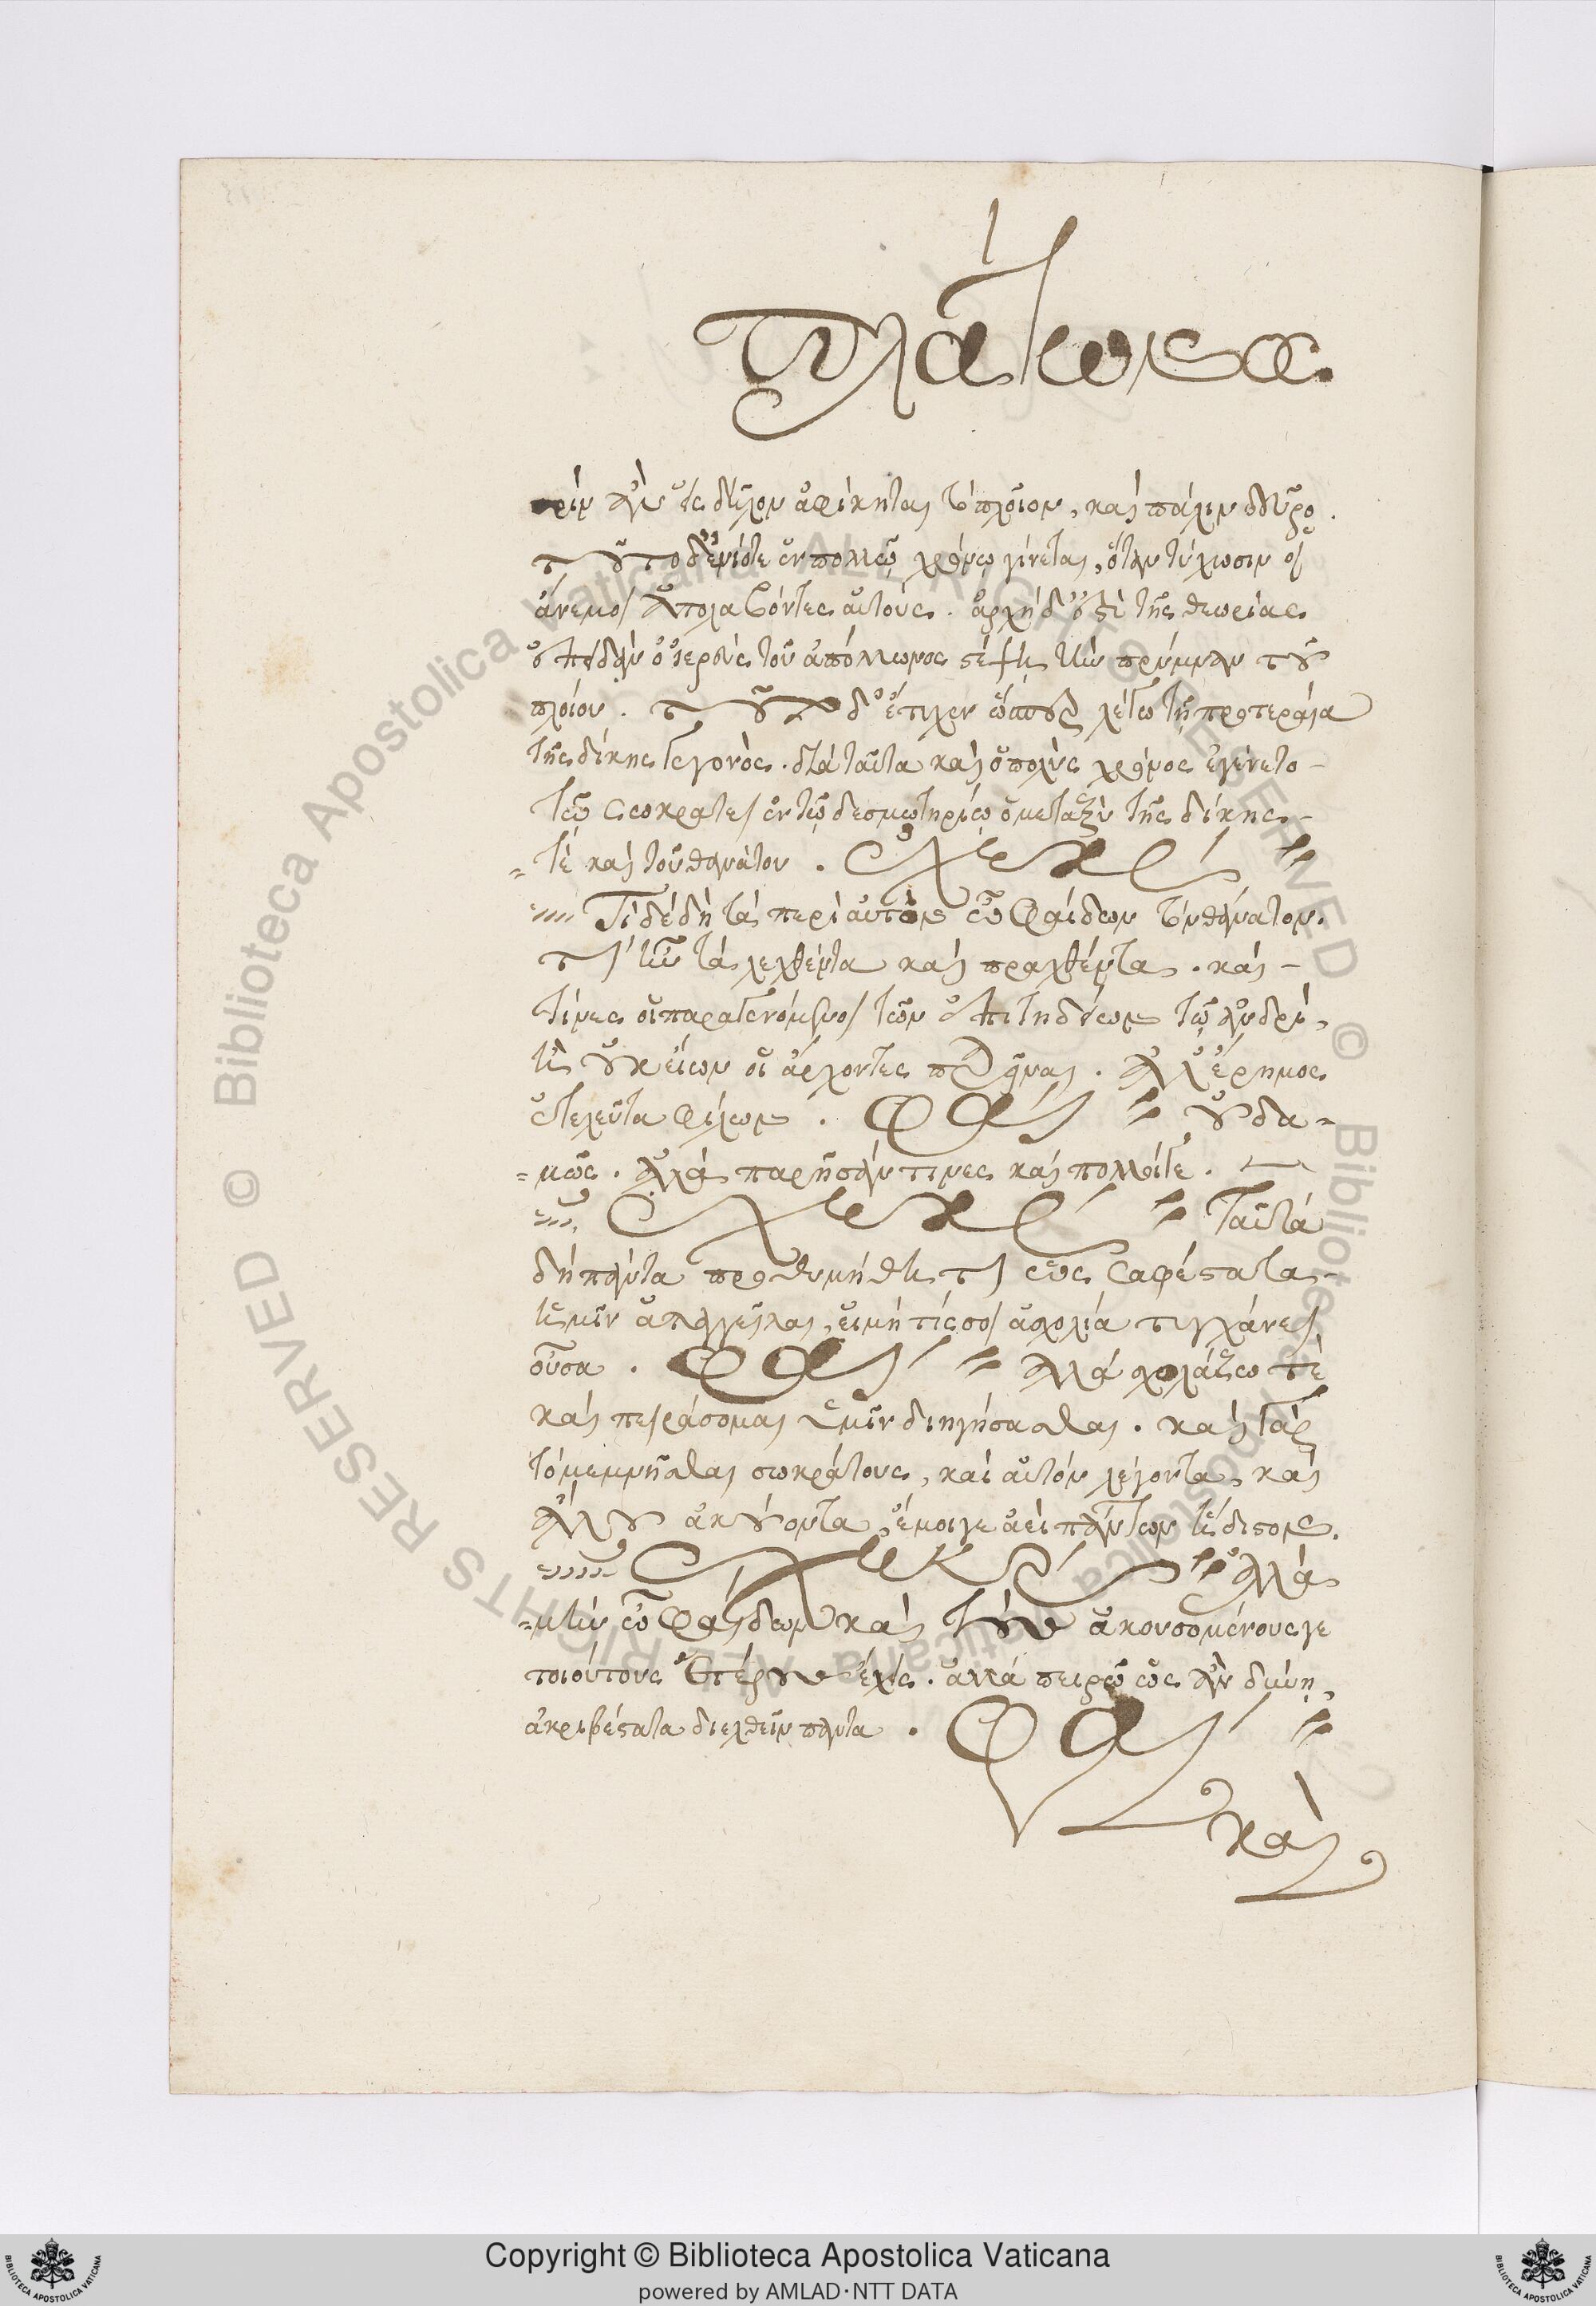 πλάτωνος
πρὶν ἂν εἰς δῆλον ἀφίκηται τὸ πλοῖον, καὶ πάλιν δεῦρο.
τοῦτο δ' ἐνίοτε ἐν πολλῷ χρόνῳ γίνεται, ὅταν τύχωσιν οἱ
ἄνεμοι ἀπολαβόντες αὐτούς. ἀρχὴ δ' ἐστὶ τῆς θεωρίας
ἐπειδὰν ὁ ἱερεὺς τοῦ ἀπόλλωνος στέψῃ τὴν πρύμναν τοῦ
πλοίου. τοῦτο δ' ἔτυχεν ὥσπερ λέγω τῇ προτεραίᾳ
τῆς δίκης γεγονός. διὰ ταῦτα καὶ ὁ πολὺς χρόνος ἐγένετο -
τῷ σωκράτει ἐν τῷ δεσμωτηρίῳ ὁ μεταξὺ τῆς δίκης -
= τὲ καὶ τοῦ θανάτου. ἐχεκρ
Τί δὲ δὴ τὰ περὶ αὐτὸν ὦ Φαίδων τὸν θάνατον.
τί ἦν τὰ λεχθέντα καὶ πραχθέντα. καὶ -
τίνες οἱ παραγενόμενοι τῶν ἐπιτηδείων τῷ ἀνδρί,
ἢ οὐκ εἴων οἱ ἄρχοντες παρεῖναι. ἀλλ' ἔρημος
ἐτελεύτα φίλων. Φαί οὐδα-
-μῶς. ἀλλὰ παρῆσάν τινες καὶ πολλοίγε.
ἐχεκρ Ταῦτα
δὴ πάντα προθυμήθητι ὡς σαφέστατα -
ἡμῖν ἀπαγγεῖλαι, εἰ μή τίς σοι ἀσχολία τυγχάνει
οὖσα. Φαί ἀλλὰ σχολάζω τὲ
καὶ πειράσομαι ὑμῖν διηγήσασθαι. καὶ γὰρ
τὸ μεμνῆσθαι σωκράτους, καὶ αὐτὸν λέγοντα, καὶ
ἄλλου ἀκούοντα, ἔμοιγε ἀεὶ πάντων ἥδιστον.
ἐχεκρ ἀλλὰ
-μὴν ὦ Φαίδων καὶ τοὺς ἀκουσομένους γε
τοιούτους ἑτέρους ἔχεις. ἀλλὰ πειρῶ ὡς ἂν δύνῃ,
ἀκριβέστατα διελθεῖν πάντα. Φαί
καὶ
Copyright © Biblioteca Apostolica Vaticana
powered by AMLAD·NTT DATA